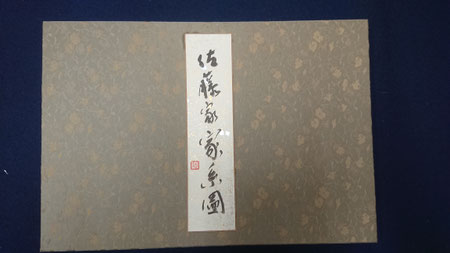 佐藤家家系圖